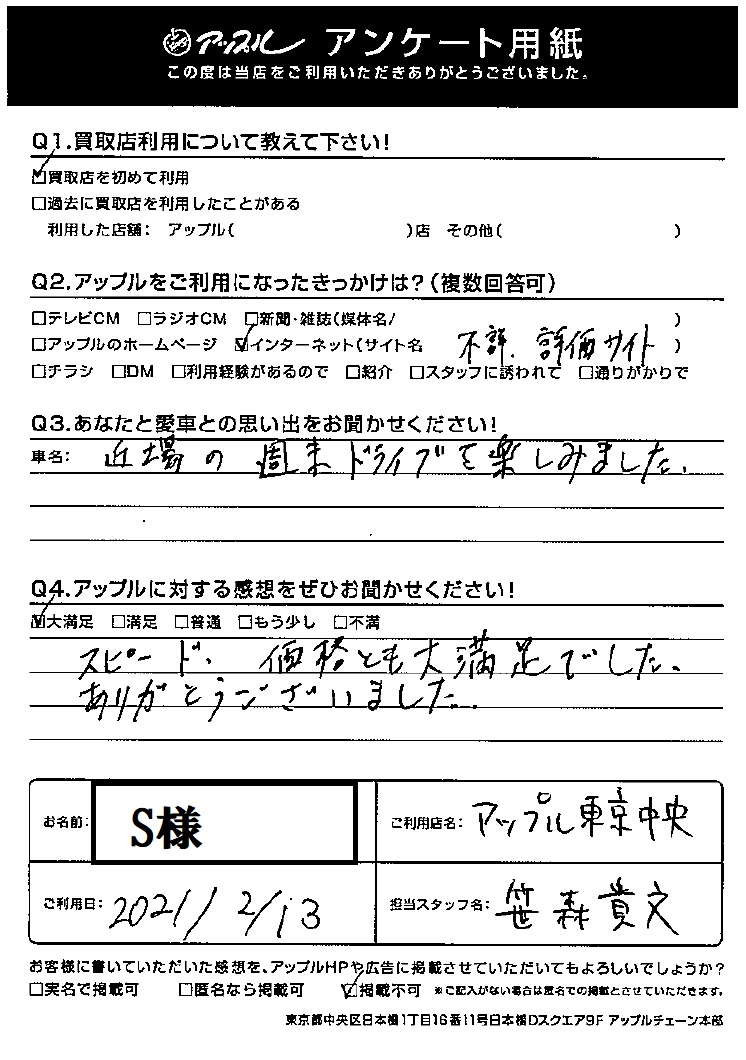 アップル アンケート用紙
この度は当店をご利用いただきありがとうございました。
Q1.買取店利用について教えて下さい!
☑買取店を初めて利用
□過去に買取店を利用したことがある
利用した店舗: アップル( )店 その他( )
Q2.アップルをご利用になったきっかけは?(複数回答可)
□テレビCM □ラジオCM □新聞・雑誌(媒体名/ )
□アップルのホームページ ☑インターネット(サイト名 不評、評価サイト )
□チラシ □DM □利用経験があるので □紹介 □スタッフに誘われて □通りがかりで
Q3.あなたと愛車との思い出をお聞かせください!
車名: 近場の週末ドライブを楽しみました.
Q4.アップルに対する感想をぜひお聞かせください!
☑大満足 □満足 □普通 □もう少し □不満
スピード、価格とも大満足でした、
ありがとうございました.
お名前: S様
ご利用店名: アップル東京中央
ご利用日: 2021/2/13
担当スタッフ名: 笹森貴文
お客様に書いていただいた感想を、アップルHPや広告に掲載させていただいてもよろしいでしょうか?
□実名で掲載可 □匿名なら掲載可 ☑掲載不可 ※ご記入がない場合は匿名での掲載とさせていただきます。
東京都中央区日本橋1丁目16番11号日本橋Dスクエア9F アップルチェーン本部